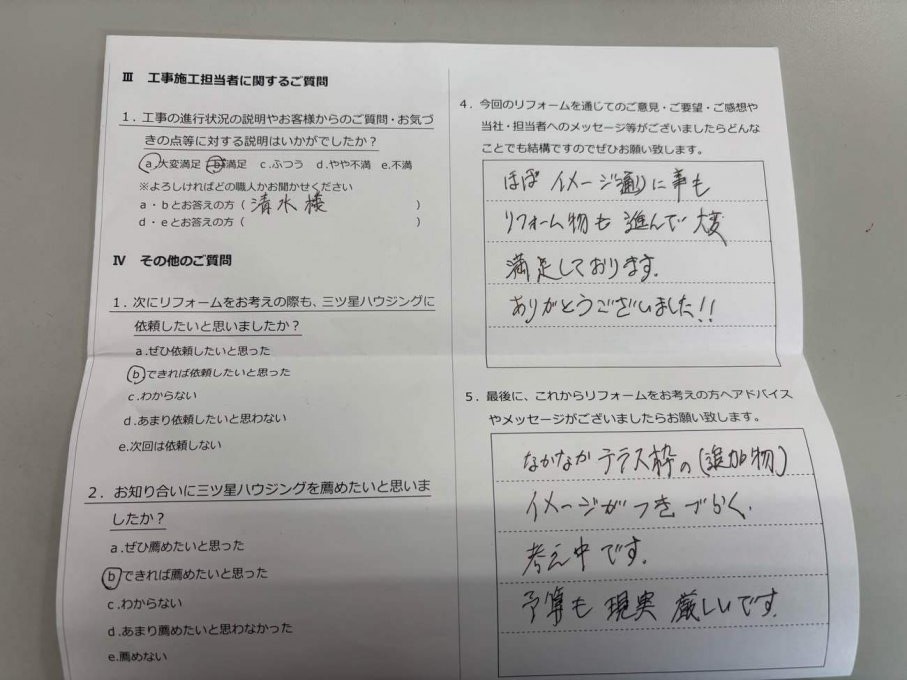 Ⅲ 工事施工担当者に関するご質問
1．工事の進行状況の説明やお客様からのご質問・お気づ
きの点等に対する説明はいかがでしたか？
a.大変満足 b.満足 c.ふつう d.やや不満 e.不満
※よろしければどの職人かお聞かせください
a・bとお答えの方（ 清水様 ）
d・eとお答えの方（ ）
Ⅳ その他のご質問
1．次にリフォームをお考えの際も、三ツ星ハウジングに
依頼したいと思いましたか？
a.ぜひ依頼したいと思った
b.できれば依頼したいと思った
c.わからない
d.あまり依頼したいと思わない
e.次回は依頼しない
2．お知り合いに三ツ星ハウジングを薦めたいと思いま
したか？
a.ぜひ薦めたいと思った
b.できれば薦めたいと思った
c.わからない
d.あまり薦めたいと思わなかった
e.薦めない
4．今回のリフォームを通じてのご意見・ご要望・ご感想や
当社・担当者へのメッセージ等がございましたらどんな
ことでも結構ですのでぜひお願い致します。
ほぼ イメージ通りに事も
リフォーム物も 進んで 大変
満足しております。
ありがとうございました!!
5．最後に、これからリフォームをお考えの方へアドバイス
やメッセージがございましたらお願い致します。
なかなか テラス枠の(追加物)
イメージが つき づらく、
考え中です。
予算も 現実 厳しいです。